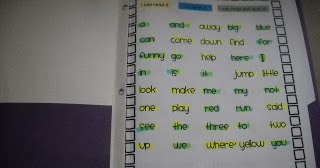 I can read it
a and away big blue
can come down find for
funny go help here I
in is it jump little
look make me my not
one play red run said
see the three to two
up we where yellow you